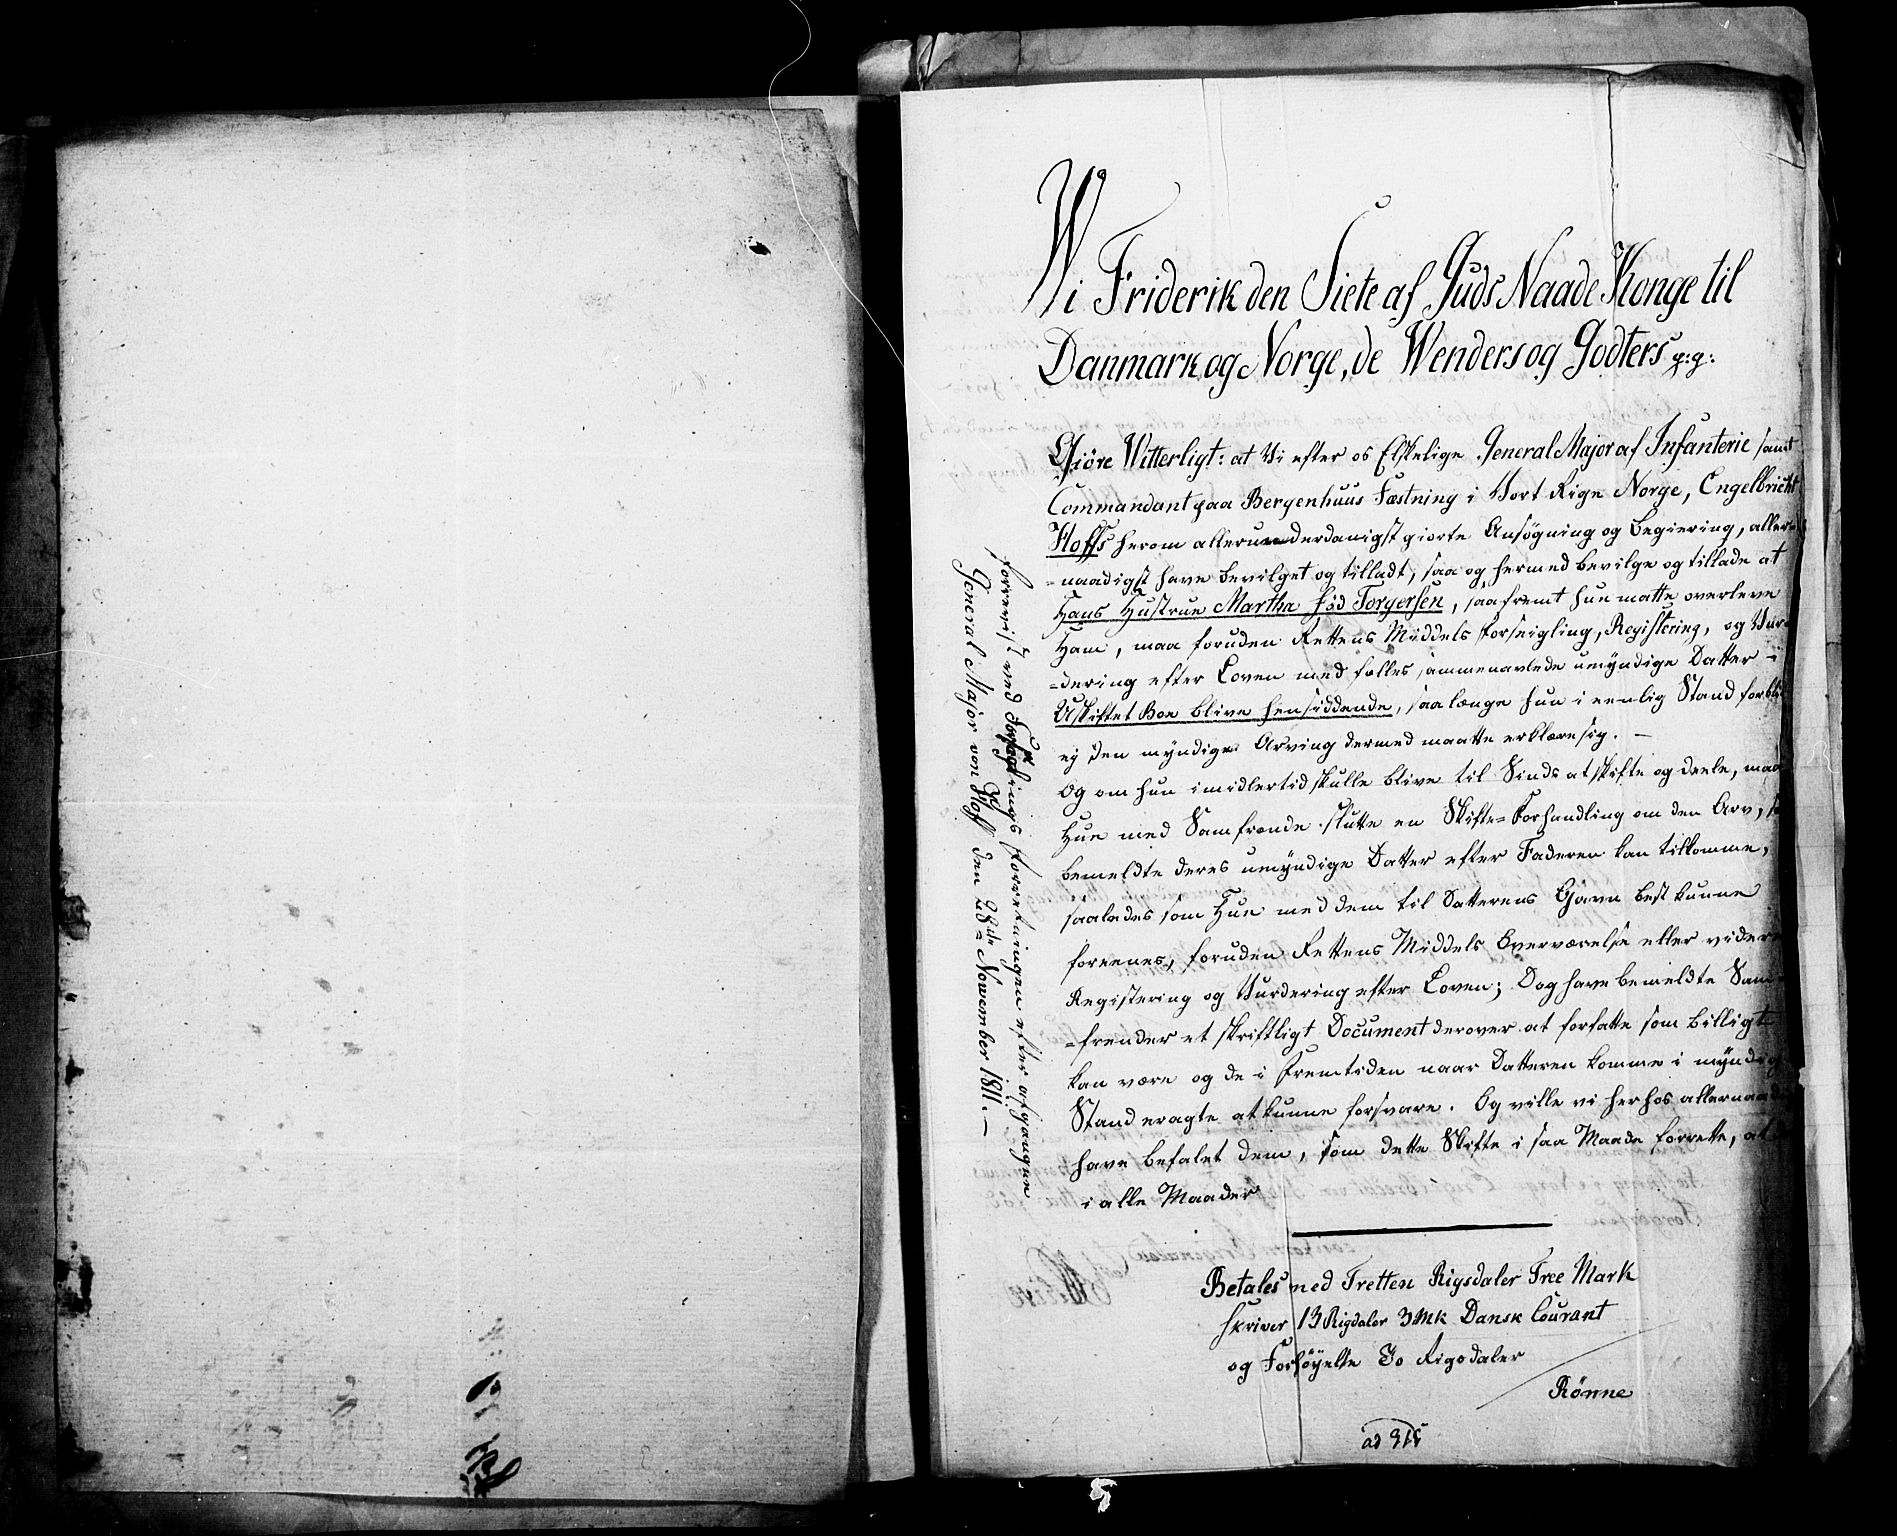 Wi Friderik den Siete af Guds Naade Konge til
Danmark og Norge, de Wenders og Godters p:g:
Giöre Witterligt: at Vi efter os Elskelige General Major af Infanterie samt
Commandant paa Bergenhuus Fæstning i Vort Rige Norge, Engelbricht
Hoffs herom allerunderdanigst giorte Ansøgning og Begiering, aller=
=naadigst have bevilget og tilladt, saa og hermed bevilge og tillade at
Hans Hustrue Martha fød Torgersen, saafremt hun matte overleve
Ham, maa foruden Rettens Middels Forseigling, Registering, og Vur=
=dering efter Loven med fælles sammenavlede umyndige Datter i
Uskiftet Boe blive hensiddende, saalænge hun i eenlig Stand forbli
ej den myndige Arving dermed maatte erklære sig. —
Og om hun imidlertid skulle blive til Sinds at skifte og deele, maa
Hun med Samfrænde slutte en Skifte=Forhandling om den Arv,
bemeldte deres umyndige Datter efter Faderen kan tilkomme,
saaledes som Hun med dem til Datterens Gavn best kunne
foreenes, foruden Rettens Middels Overværelse eller videre
Registering og Vurdering efter Loven; Dog have bemeldte Sam=
=frender et skriftligt Document derover at forfatte som billigt
kan være og de i Fremtiden naar Datteren komme i myndig
Stand eragte at kunne forsvare. Og ville vi herhos allernaadi
have befalet dem, som dette Skifte i saa Maade forrette, at
i alle Maader
Betales med Tretten Rigsdaler Tree Mark
skriver 13 Rigdaler 3 Mk Dansk Courant
og Forhøyelse Rigsdaler
Rönne
ad 915
foreviist ved forretningen efter afgangne
General Major von Hoff den 28de November 1811. —
5